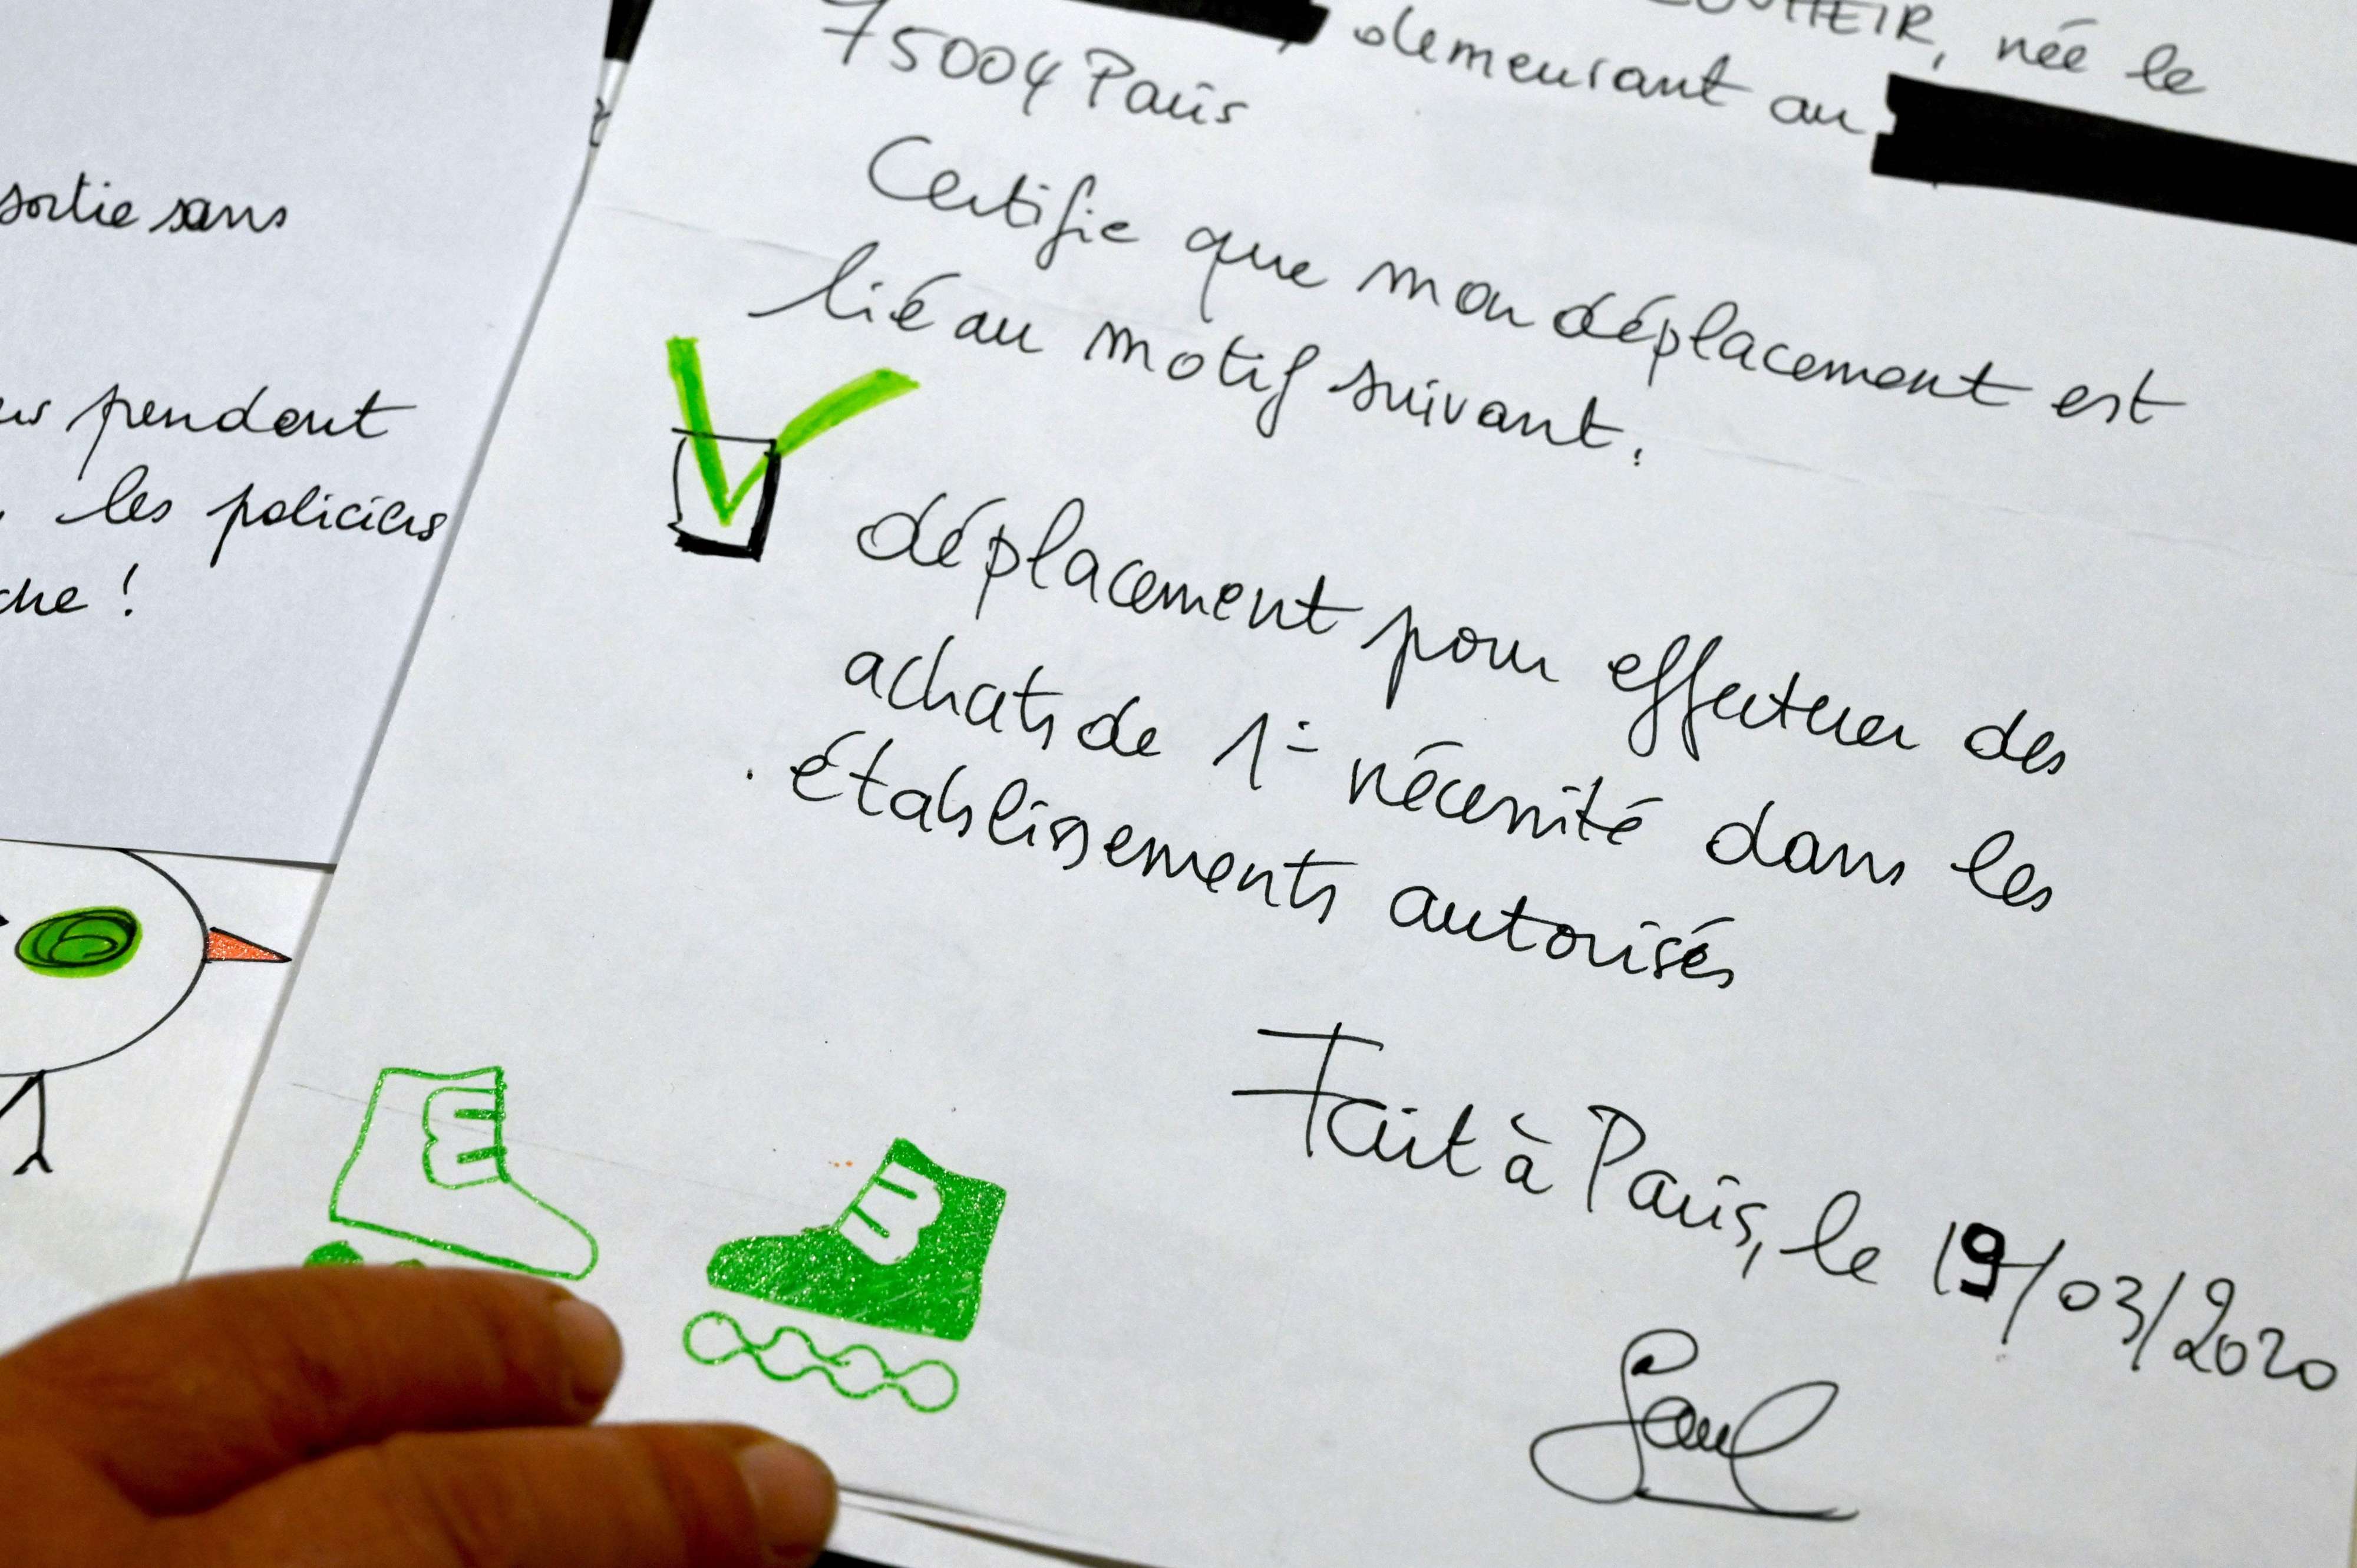 sortie sans
pendant
les policiers
!
née le
, demeurant au
75004 Paris
Certifie que mon déplacement est
lié au motif suivant.
déplacement pour effectuer des
achats de 1= nécessité dans les
établissements autorisés
Fait à Paris, le 19/03/2020